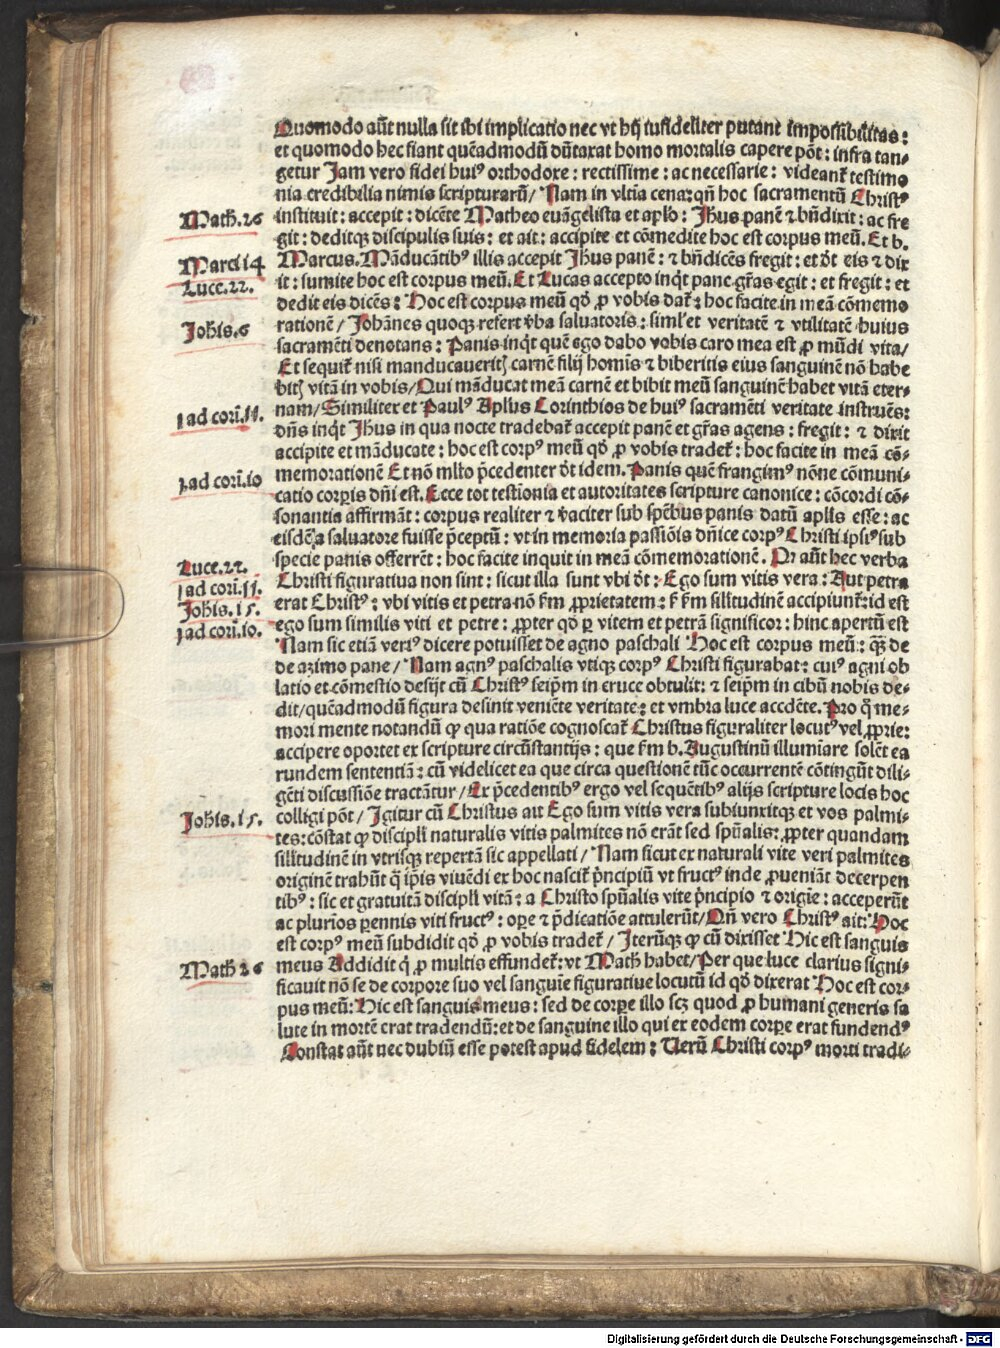 Quomodo aūt nulla sit ibi implicatio nec vt hij infideliter putant impossibilitas:
et quomodo hec fiant quēadmodū dūtaxat homo mortalis capere pōt: infra tan-
getur Jam vero fidei huiꝰ orthodoxe: rectissime: ac necessarie: videant᷑ testimo
nia credibilia nimis scripturarū/ Nam in vltīa cena: qn̄ hoc sacramentū Christꝰ
Math.26 instituit: accepit: dicēte Matheo euāgelista et apl̄o: Jh̄us panē ⁊ bn̄dixit: ac fre
git: deditqꝫ discipulis suis: et ait: accipite et cōmedite hoc est corpus meū. Et b.
Marci 14 Marcus. Māducātibꝰ illis accepit Jh̄us panē: ⁊ bn̄dicēs fregit: et dt̄ eis ⁊ dix
Luce.22. it: sumite hoc est corpus meū. Et Lucas accepto inqt panc gr̄as egit: et fregit: et
dedit eis dicēs: Hoc est corpus meū qd̄ ꝓ vobis dat᷑: hoc facite in meā cōmemo
Joh̄is.6 rationē/ Johānes quoqꝫ refert v̄ba saluatoris: siml̓ et veritatē ⁊ vtilitatē huius
sacramēti denotans: Panis inqt quē ego dabo vobis caro mea est ꝓ mūdi vita/
Et sequit᷑ nisi manducaueritꝭ carnē filij homīs ⁊ biberitis eius sanguinē nō habe
bitꝭ vitā in vobis/ Qui māducat meā carnē et bibit meū sanguinē habet vitā eter-
1 ad cori.11. nam/ Similiter et Paulꝰ Apl̄us Corinthios de huiꝰ sacramēti veritate instruēs:
dn̄s inqt Jh̄us in qua nocte tradebat᷑ accepit panē et gr̄as agens: fregit: ⁊ dixit
accipite et māducate: hoc est corpꝰ meū qd̄ ꝓ vobis tradet᷑: hoc facite in meā cō-
1.ad cori.10 memorationē Et nō ml̓to p̄cedenter dt̄ idem. Panis quē frangimꝰ nōne cōmuni-
catio corpīs dn̄i est. Ecce tot testīonia et autoritates scripture canonice: cōcordi cō-
sonantia affirmāt: corpus realiter ⁊ v̄aciter sub sp̄ebus panis datū apl̄is esse: ac
eisdē a saluatore fuisse p̄ceptū: vt in memoria passiōis dn̄ice corpꝰ Christi ipsiꝰ sub
Luce.22. specie panis offerrēt: hoc facite inquit in meā cōmemorationē. Qr aūt hec verba
1 ad cori.11. Christi figuratiua non sint: sicut illa sunt vbi dt̄: Ego sum vitis vera: Aut petra
Joh̄is.15. erat Christꝰ: vbi vitis et petra nō fm̄ ꝓprietatem: ꝑ fm̄ sil̓itudinē accipiunt᷑: id est
1 ad cori.10. ego sum similis viti et petre: ꝓpter qd̄ ꝑ vitem et petrā significor: hinc apertū est
Nam sic etiā veriꝰ dicere potuisset de agno paschali Hoc est corpus meū: qꝫ de
de azimo pane/ Nam agnꝰ paschalis vtiqꝫ corpꝰ Christi figurabat: cuiꝰ agni ob
latio et cōmestio desijt cū Christꝰ seip̄m in cruce obtulit: ⁊ seip̄m in cibū nobis de-
dit/ quēadmodū figura desinit veniēte veritate: et vmbra luce accdēte. Pro q̄ me-
mori mente notandū ꝙ qua ratiōe cognoscat᷑ Christus figuraliter locutꝰ vel ꝓprie:
accipere oportet ex scripture circūstantijs: que fm̄ b. Augustinū illumīare solēt ea
rundem sententiā: cū videlicet ea que circa questionē tūc occurrentē cōtingūt dili-
gēti discussiōe tractātur/ Ex p̄cedentibꝰ ergo vel sequētibꝰ alijs scripture locis hoc
Joh̄is.15. colligi pōt/ Igitur cū Christus ait Ego sum vitis vera subiunxitqꝫ et vos palmi-
tes: cōstat ꝙ discipl̓i naturalis vitis palmites nō erāt sed sp̄uales: ꝓpter quandam
sil̓itudinē in vtrisqꝫ repertā sic appellati/ Nam sicut ex naturali vite veri palmites
originē trahūt q̄ ip̄is viuēdi ex hoc nascit᷑ p̄ncipiū vt fructꝰ inde ꝓueniāt decerpen
tibꝰ: sic et gratuitā discipl̓i vitā: a Christo sp̄ualis vite p̄ncipio ⁊ origīe: acceperūt
ac plurīos ꝑennis viti fructꝰ: oꝑe ⁊ p̄dicatiōe attulerūt/ Qn̄ vero Christꝰ ait: Hoc
est corpꝰ meū subdidit qd̄ ꝓ vobis tradet᷑/ Iterūqꝫ ꝙ cū dixisset Hic est sanguis
Math 26 meus Addidit q̄ ꝓ multis effundet᷑: vt Math̄ habet/ Per que luce clarius signi-
ficauit nō se de corpore suo vel sanguīe figuratiue locutū id qd̄ dixerat Hoc est cor-
pus meū: Hic est sanguis meus: sed de corꝑe illo scꝫ quod ꝓ humani generis sa
lute in mortē erat tradendū: et de sanguine illo qui ex eodem corꝑe erat fundendꝰ
Constat aūt nec dubiū esse potest apud fidelem: Verū Christi corpꝰ morti tradi-
Digitalisierung gefördert durch die Deutsche Forschungsgemeinschaft - DFG